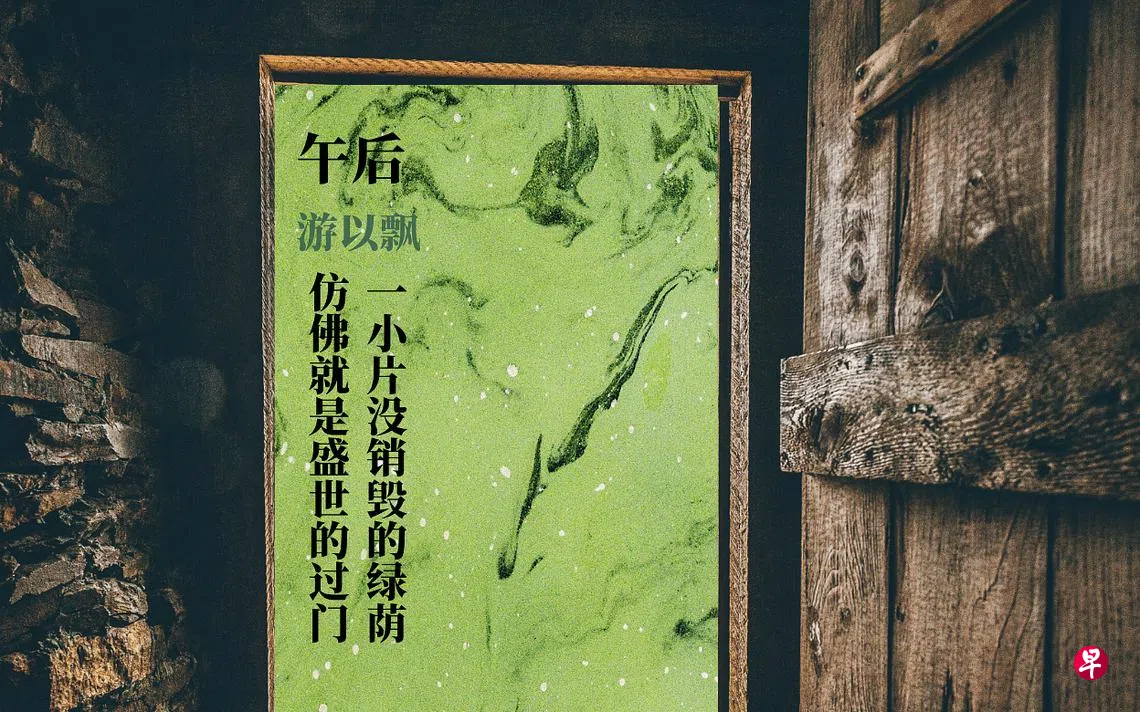 午后
游以飘
一小片没销毁的绿荫
仿佛就是盛世的过门
早